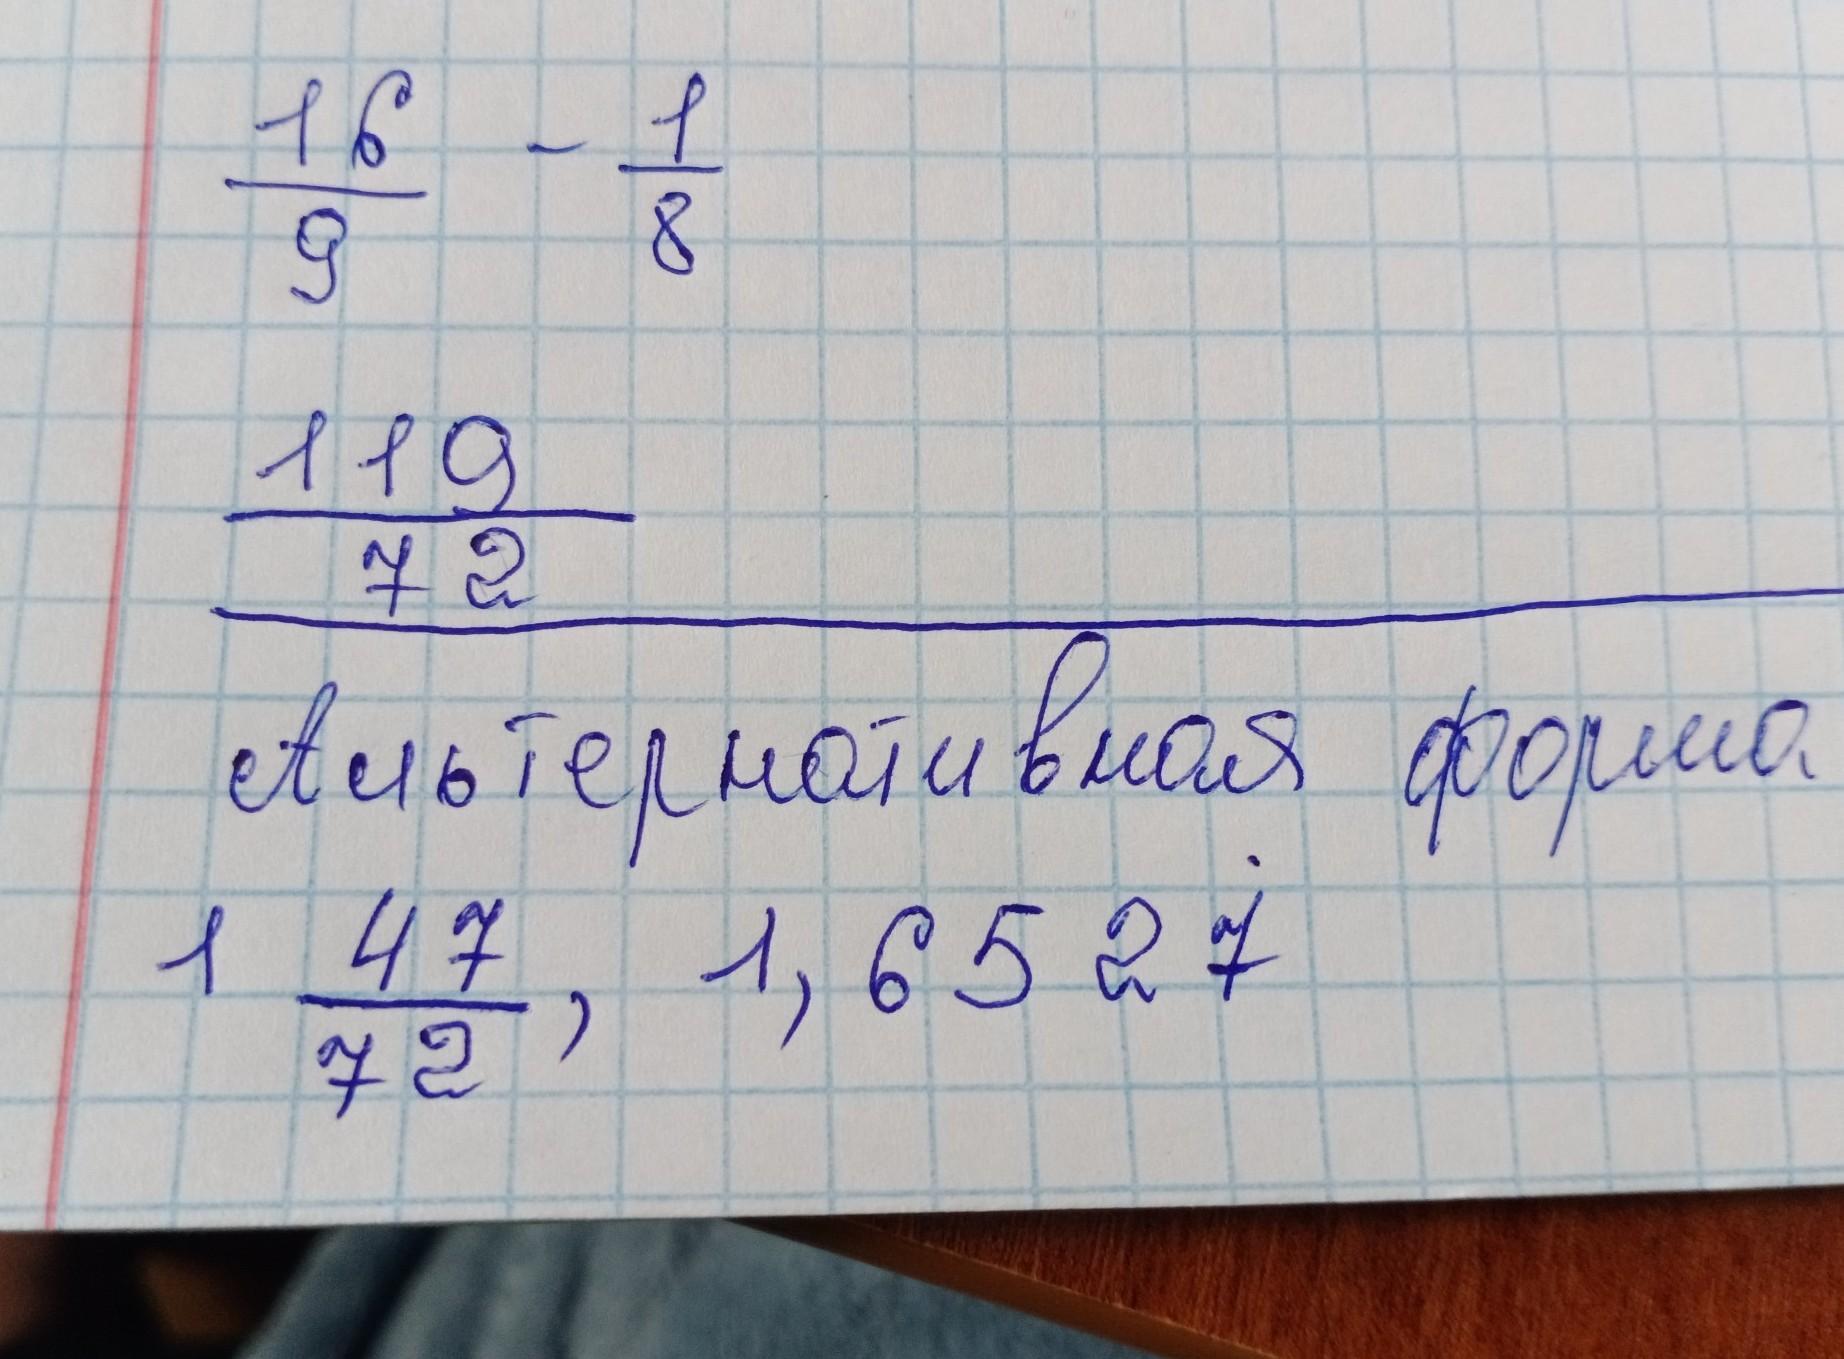 16/9 - 1/8
119/72
Альтернативная форма
1 47/72, 1,6527̇